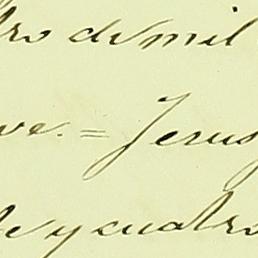 tro de mil
ve. = Jesus
te y cuatro